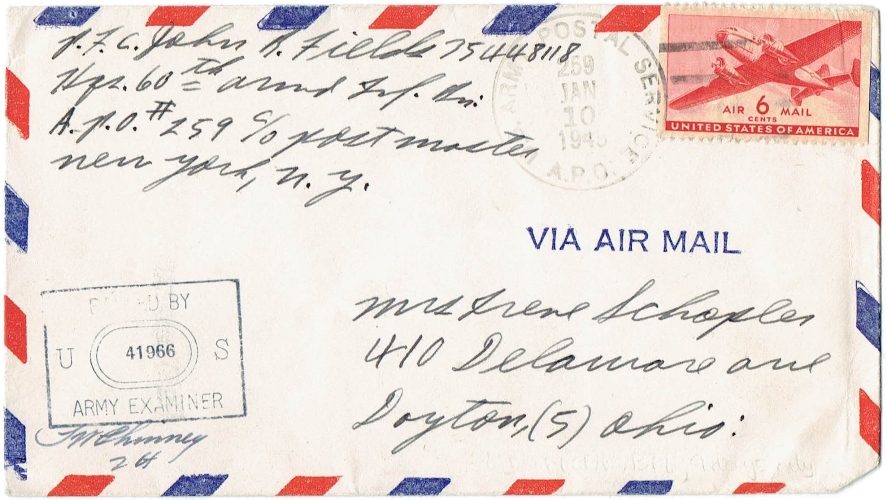 P.F.C. John R. Fields 75448118
Hqs. 60th armd Inf. Bn.
A.P.O. # 259 c/o postmaster
new york, n. y.
ARMY POSTAL SERVICE
259
JAN
10
194
A.P.O.
AIR 6 MAIL
CENTS
UNITED STATES OF AMERICA
VIA AIR MAIL
mrs Irene Schopler
410 Delaware ave
Dayton, (5) Ohio:
BY
U 41966 S
ARMY EXAMINER
24